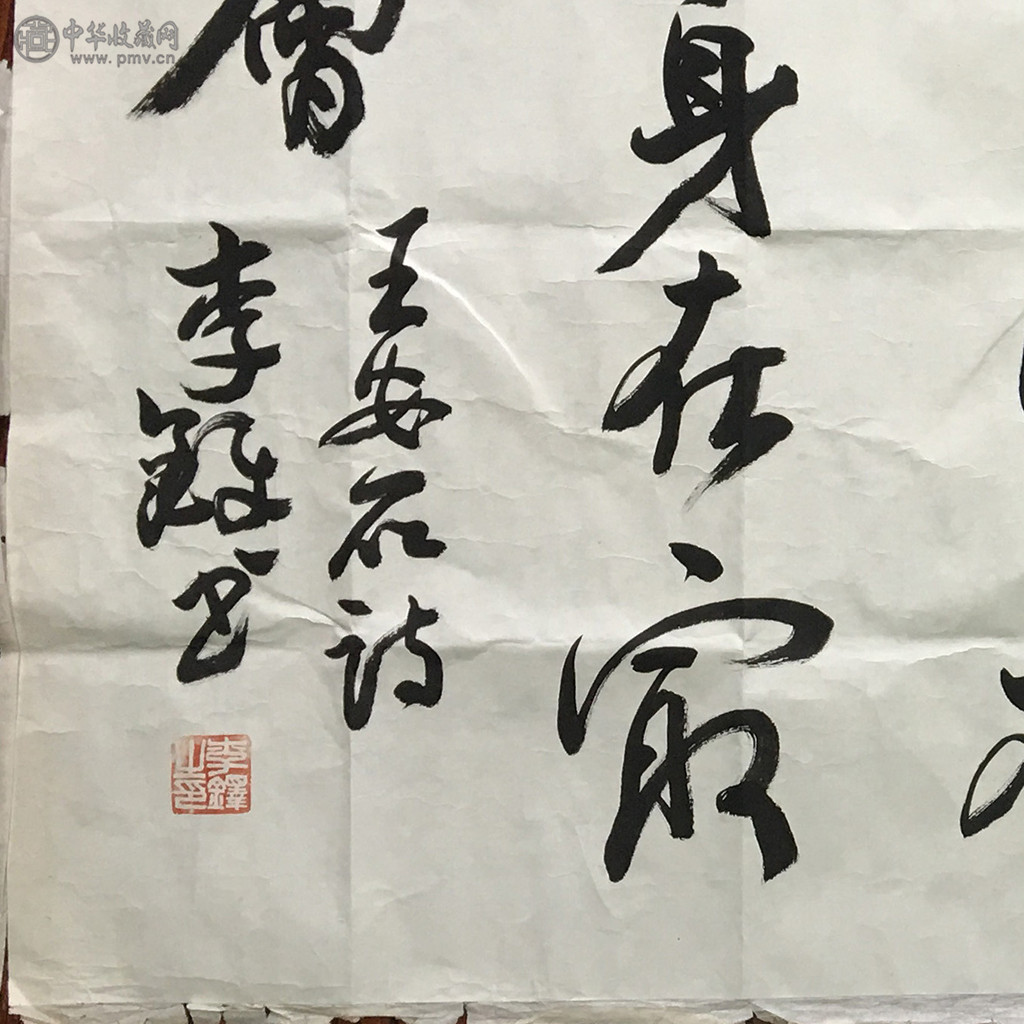 中华收藏网
www.pmv.cn
身在最
層
王安石诗
李铎书
李鐸之印